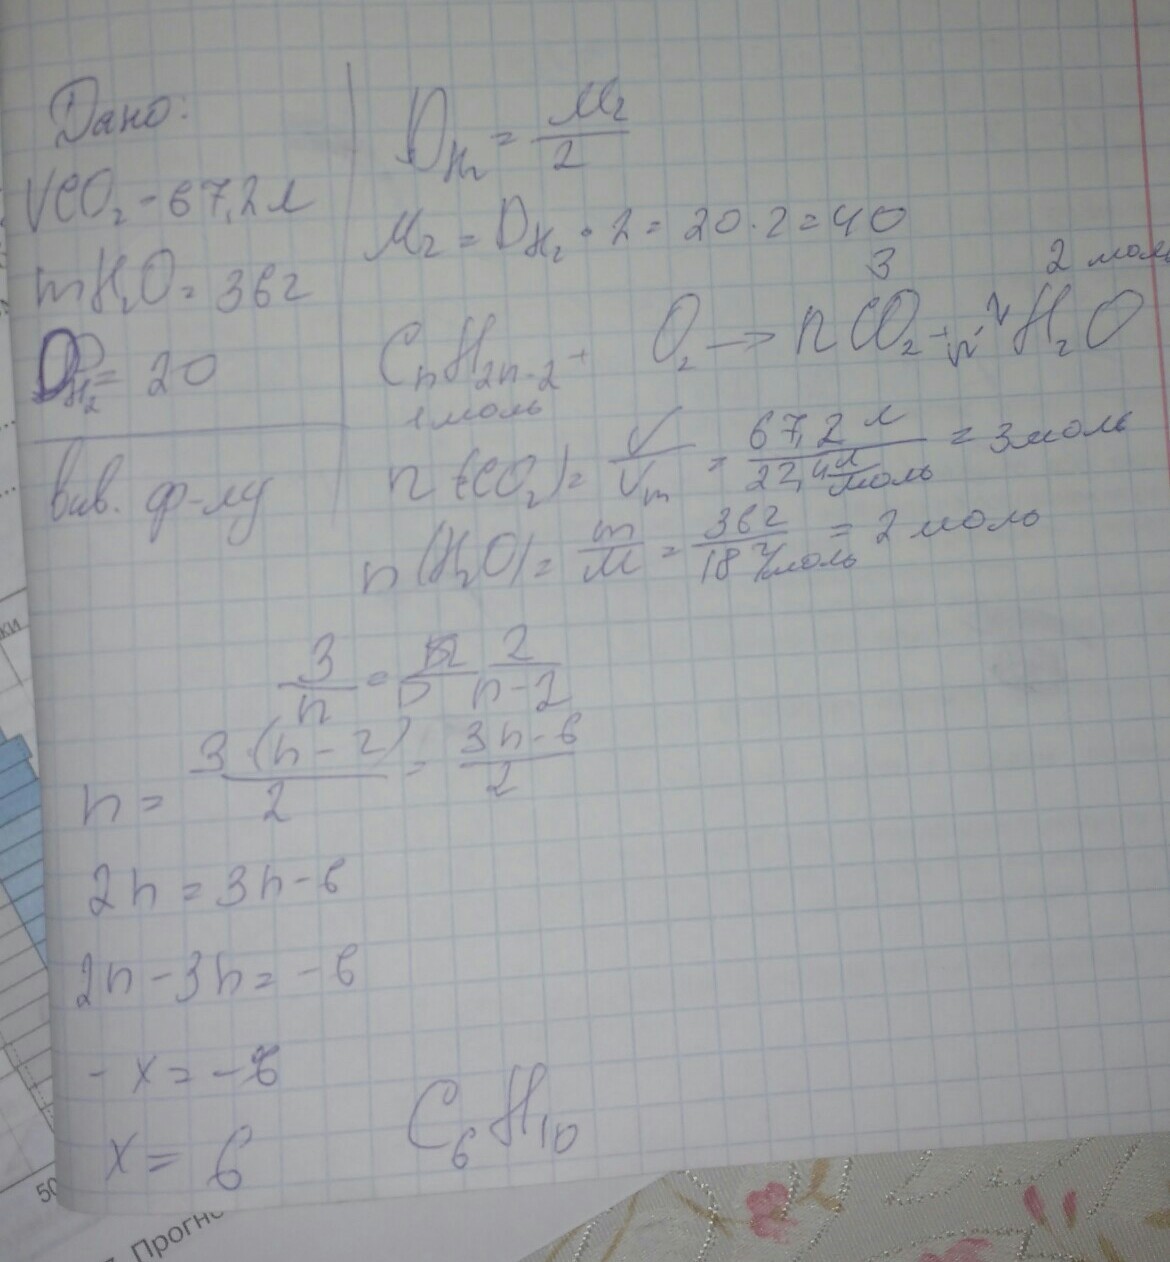 Дано:
VCO₂ - 67,2 л
mH₂O = 36 г
D_H₂ = 20
Вив. ф-лу
D_H₂ = Mг / 2
Mг = D_H₂ · 2 = 20 · 2 = 40
3 2 моль
CₙH₂ₙ₋₂ + O₂ → nCO₂ + H₂O
1 моль
n(CO₂) = V / Vm = 67,2 л / 22,4 л/моль = 3 моль
n(H₂O) = m / M = 36 г / 18 г/моль = 2 моль
3 / n = 2 / n-2
n = 3·(n-2) / 2 = 3n-6 / 2
2n = 3n-6
2n - 3n = -6
- x = -6
x = 6
C₆H₁₀
ки
50
Прогно